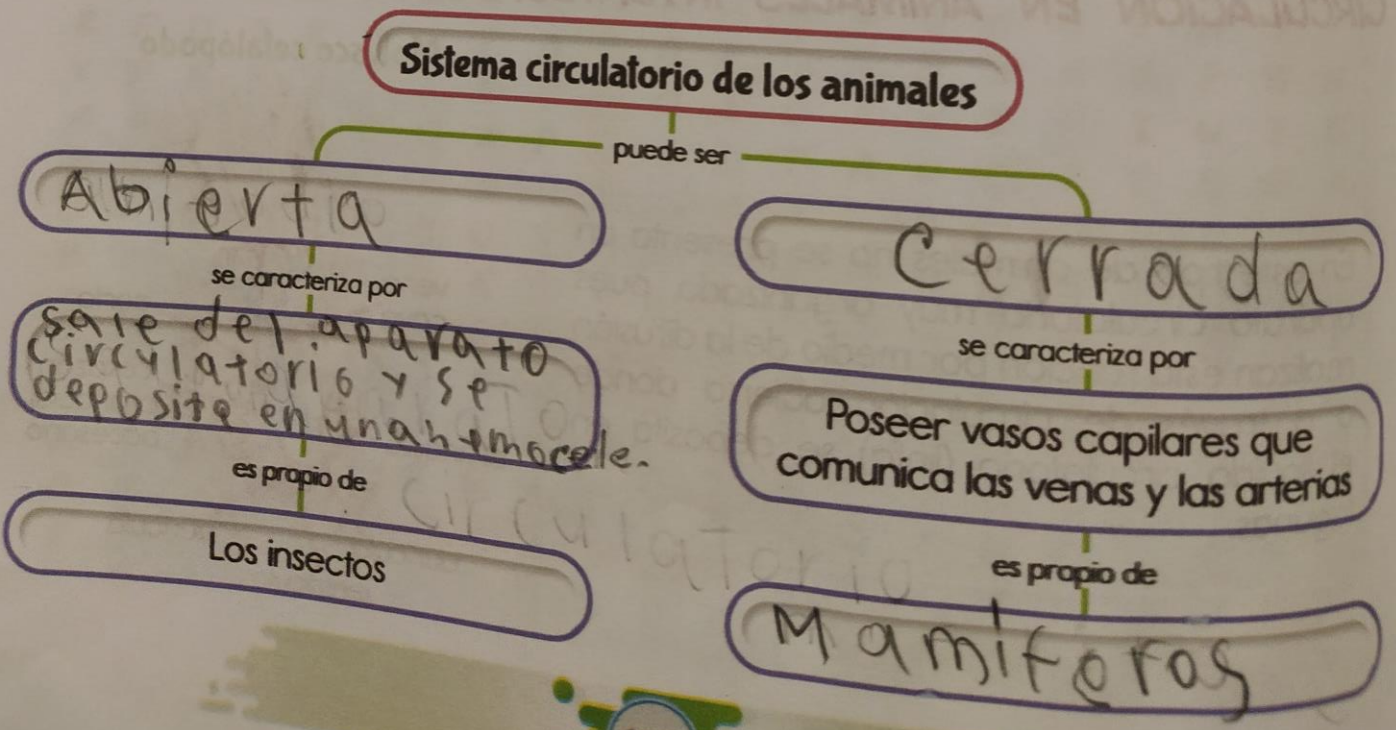 Sistema circulatorio de los animales
puede ser
Abierta
se caracteriza por
sale del aparato
circulatorio y se
deposita en una hemocele.
es propio de
Los insectos
Cerrada
se caracteriza por
Poseer vasos capilares que
comunica las venas y las arterias
es propio de
Mamiferos
circulatorio